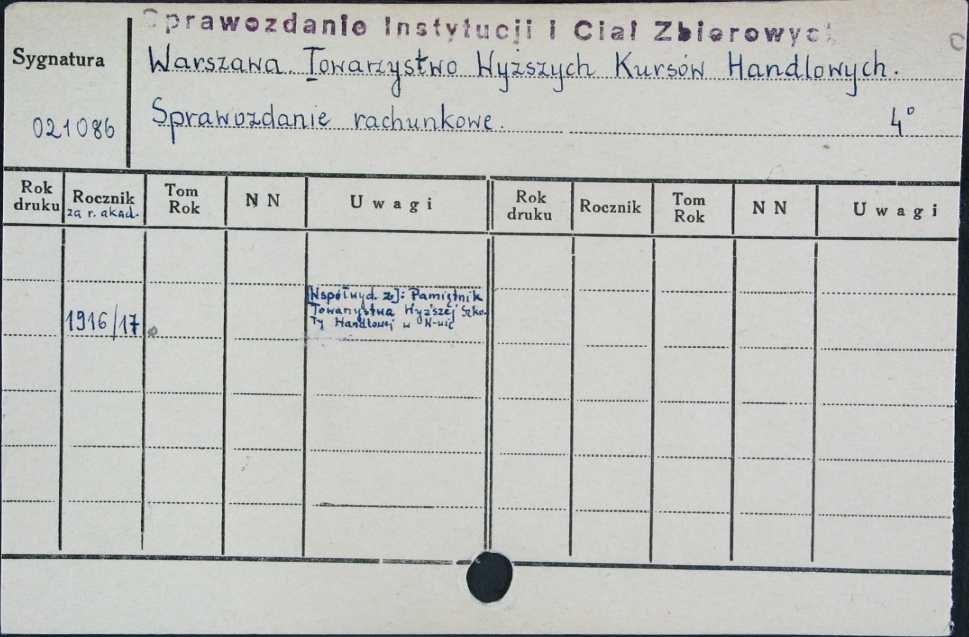 Sprawozdanie Instytucji i Ciał Zbiorowych
Sygnatura
Warszawa. Towarzystwo Wyższych Kursów Handlowych.
021086
Sprawozdanie rachunkowe. 4°
Rok druku
Rocznik
za r. akad.
Tom Rok
N N
Uwagi
Rok druku
Rocznik
Tom Rok
N N
Uwagi
1916/17
[Współwyd. ze]: Pamiętnik
Towarzystwa Wyższej Szko-
ły Handlowej w W-wie